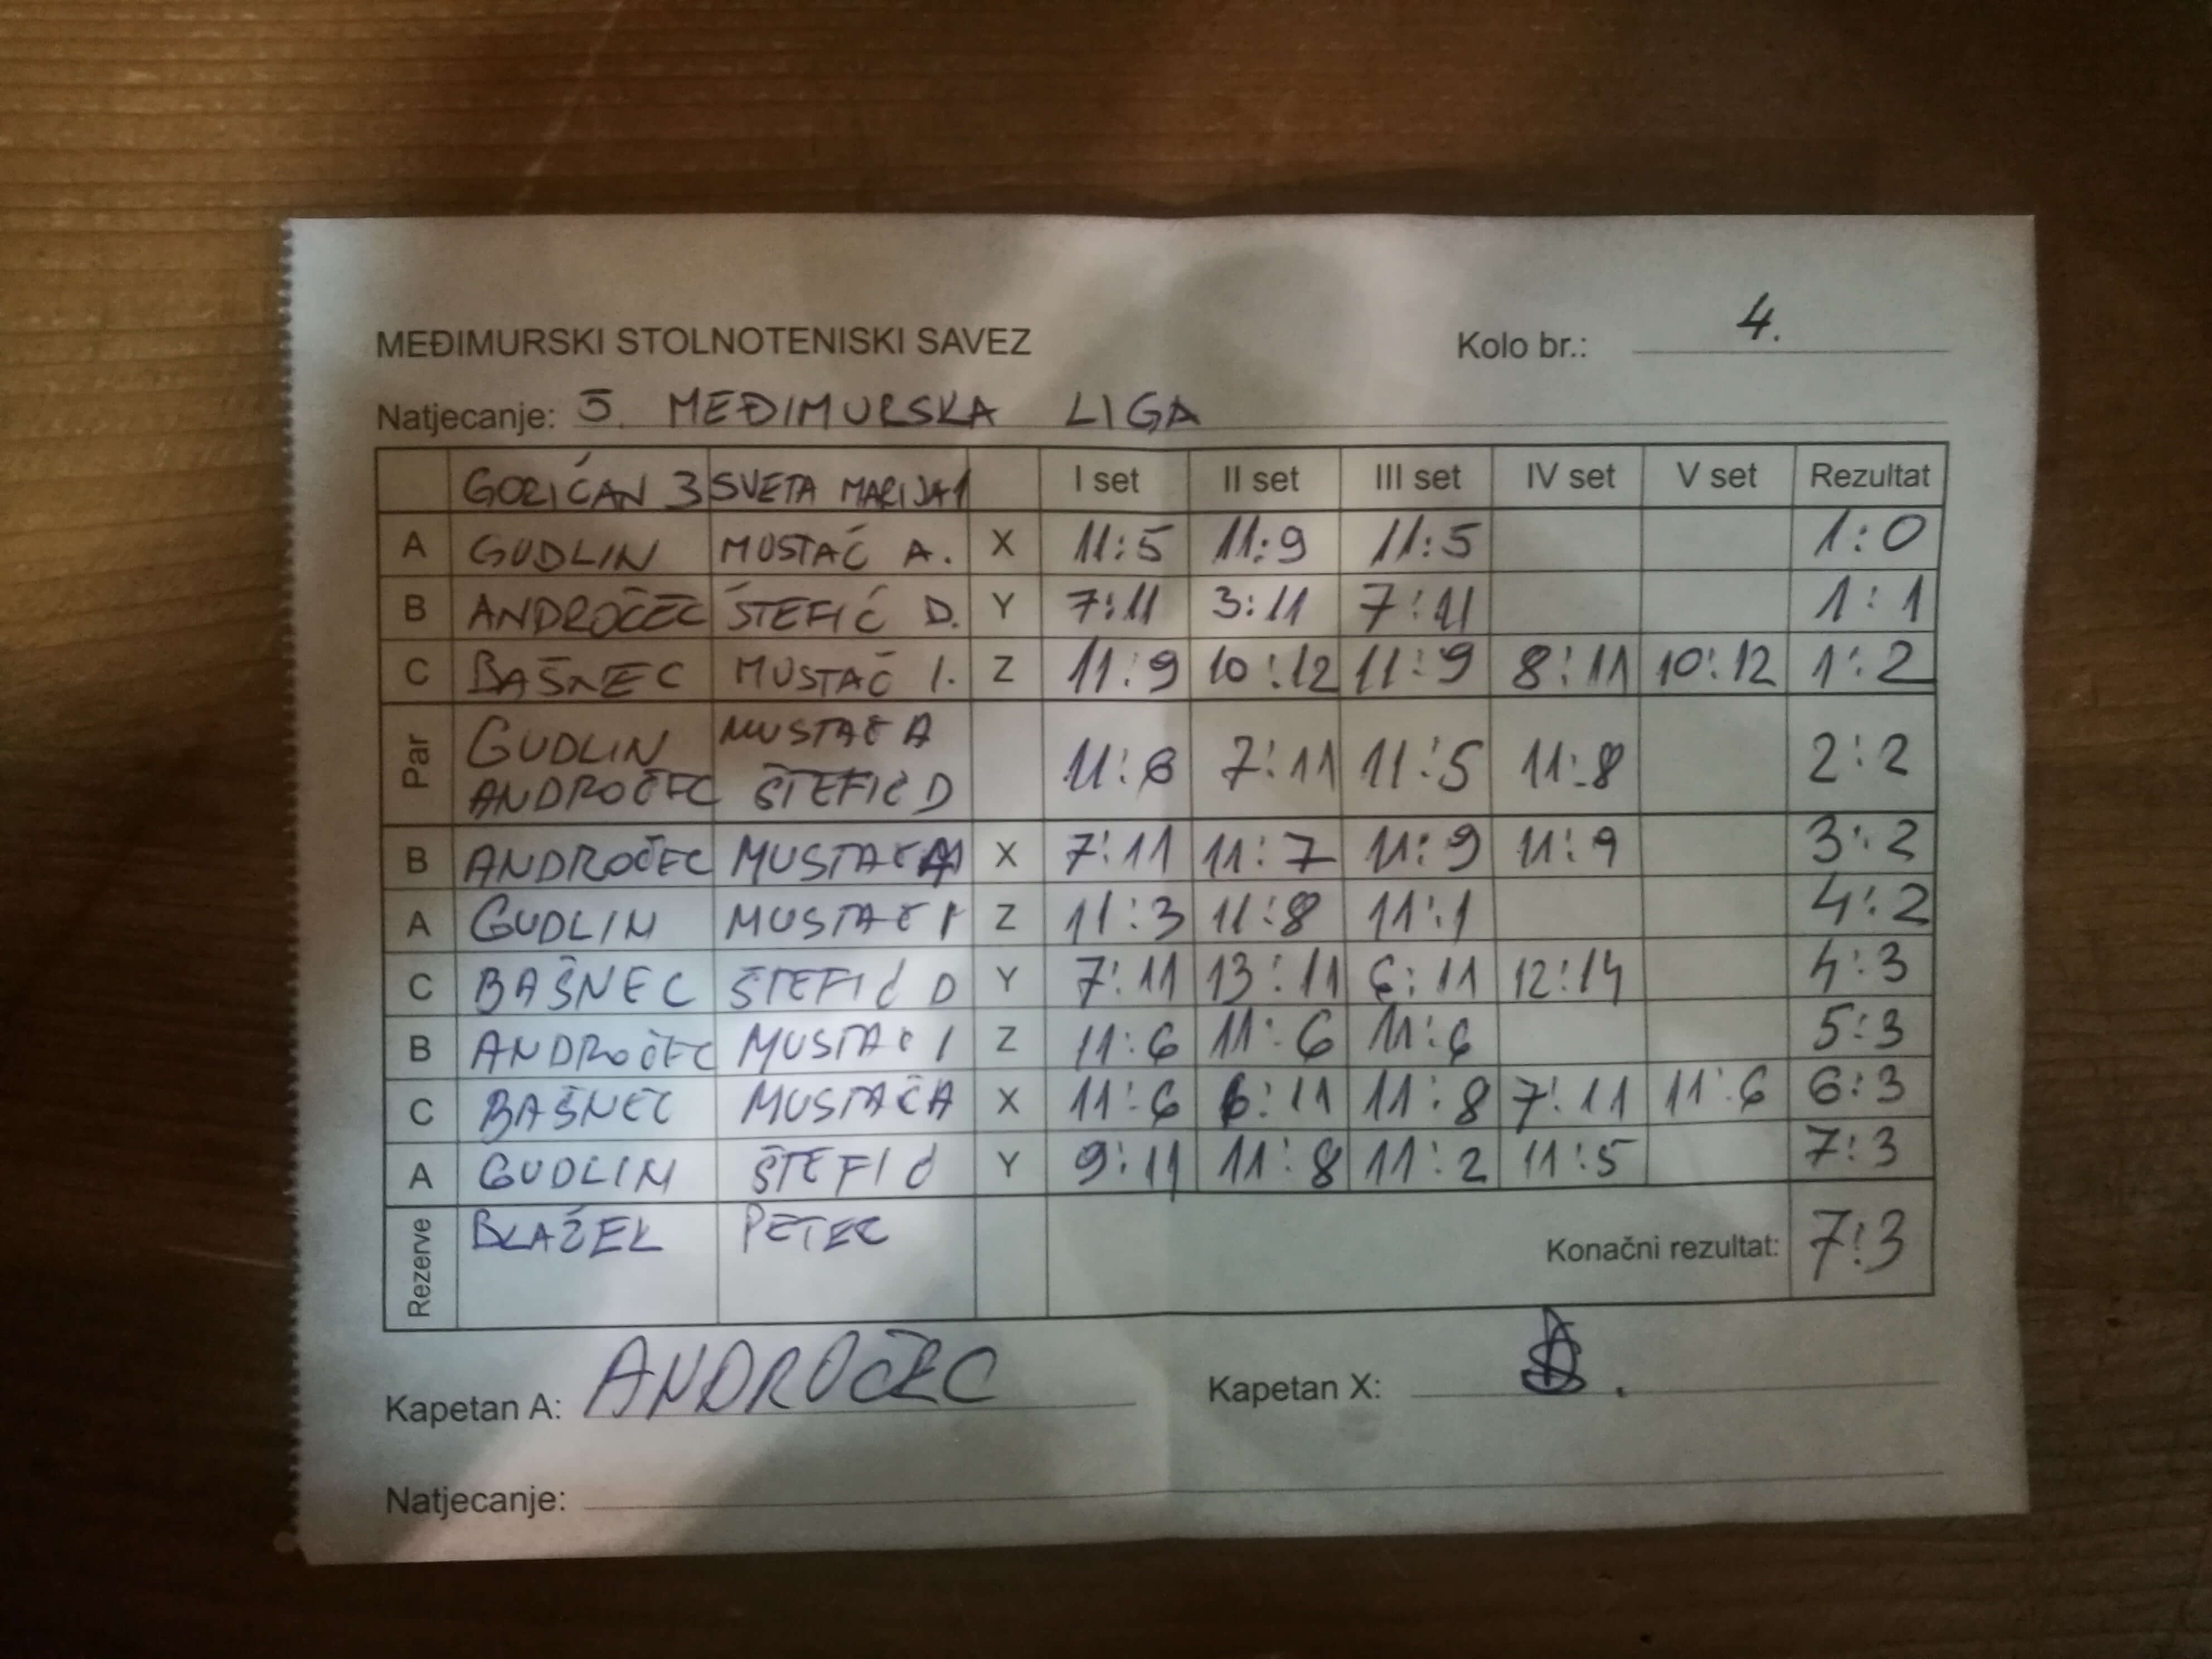 MEĐIMURSKI STOLNOTENISKI SAVEZ Kolo br.: 4.
Natjecanje: 5. MEĐIMURSKA LIGA
GORIČAN 3 SVETA MARIJA 1 I set II set III set IV set V set Rezultat
A GUDLIN MUSTAĆ A. X 11:5 11:9 11:5 1:0
B ANDROČEC ŠTEFIĆ D. Y 7:11 3:11 7:11 1:1
C BAŠNEC MUSTAČ I. Z 11:9 10:12 11:9 8:11 10:12 1:2
Par GUDLIN MUSTAČ A
ANDROČEC ŠTEFIĆ D 11:8 7:11 11:5 11:8 2:2
B ANDROČEC MUSTAČ A X 7:11 11:7 11:9 11:9 3:2
A GUDLIN MUSTAČ I Z 11:3 11:8 11:1 4:2
C BAŠNEC ŠTEFIĆ D Y 7:11 13:11 6:11 12:14 4:3
B ANDROČEC MUSTAČ I Z 11:6 11:6 11:6 5:3
C BAŠNEC MUSTAČ A X 11:6 6:11 11:8 7:11 11:6 6:3
A GUDLIN ŠTEFIĆ Y 9:11 11:8 11:2 11:5 7:3
Rezerve BLAŽEK PETEC Konačni rezultat: 7:3
Kapetan A: ANDROČEC Kapetan X:
Natjecanje: